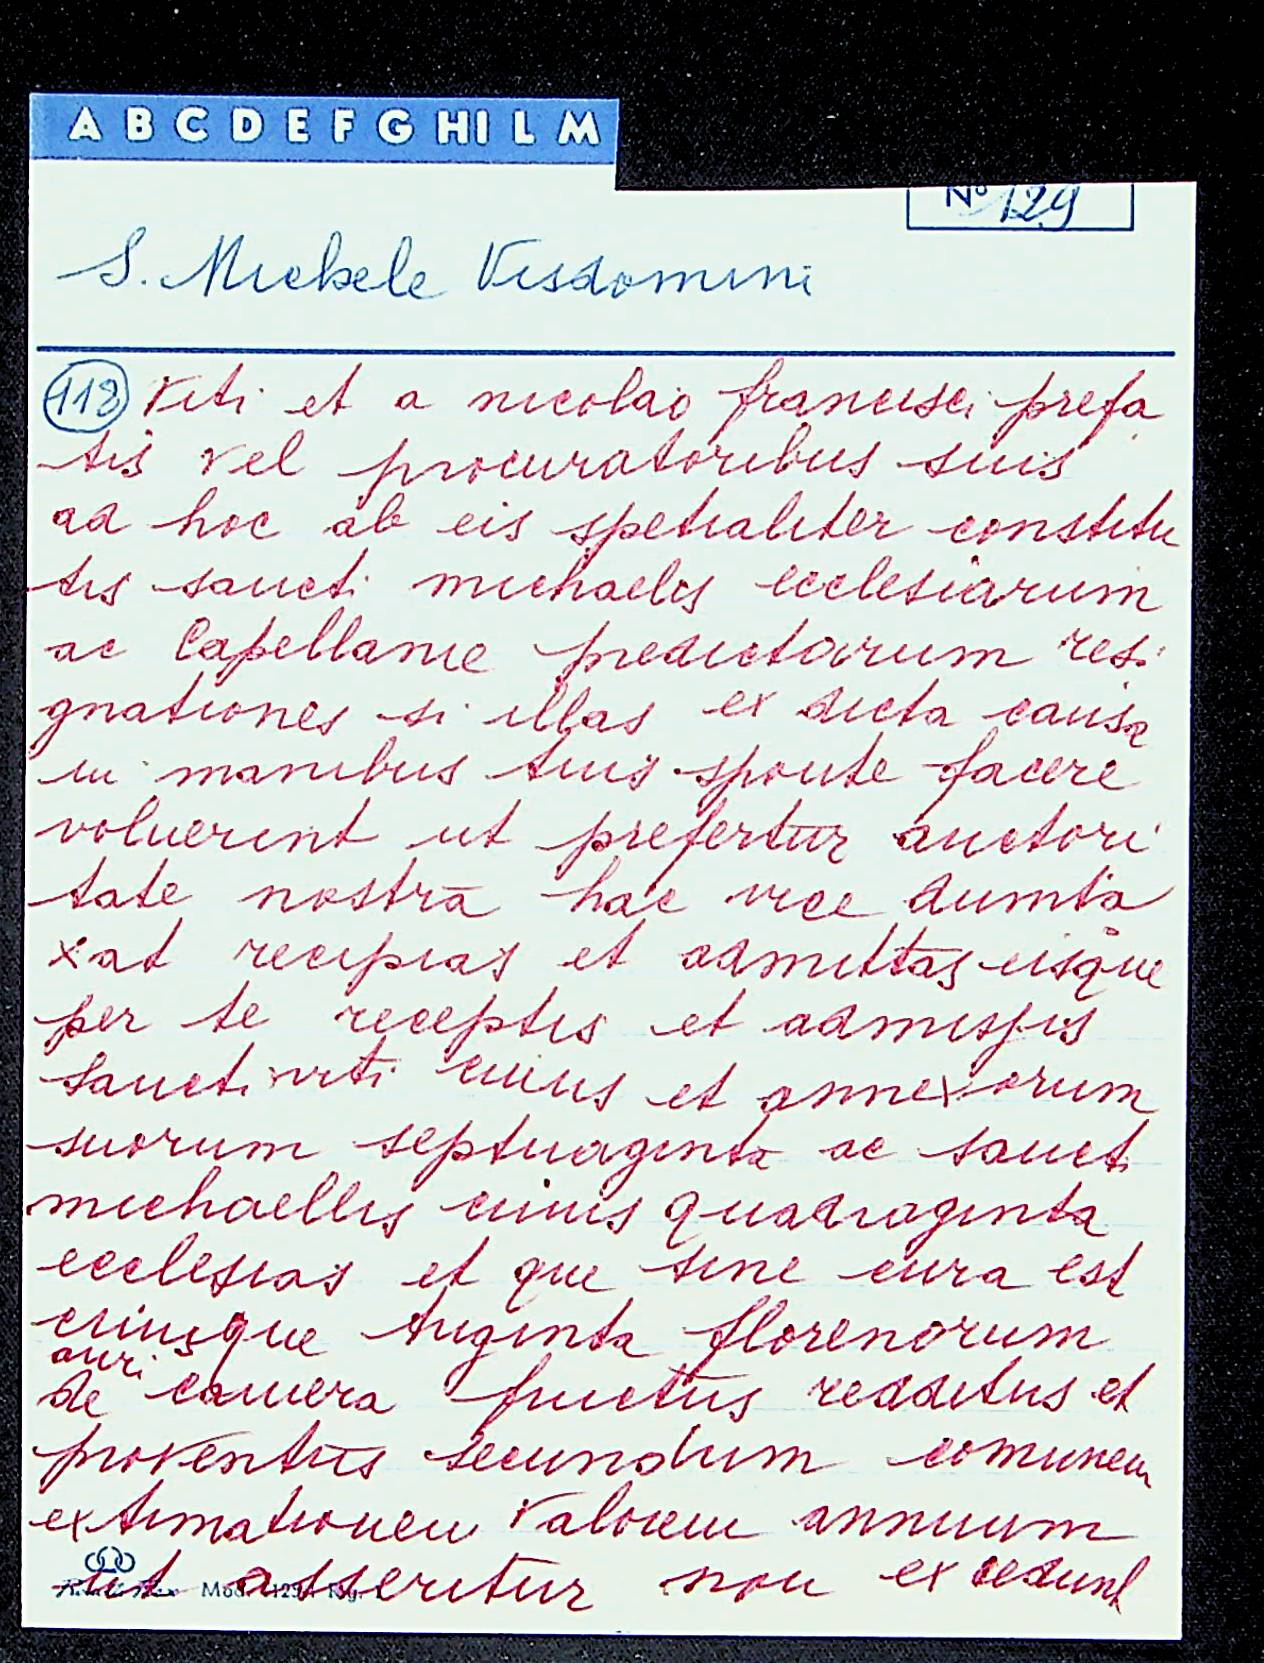 A B C D E F G HI L M
Nº 129
S. Michele Visdomini
118 Viti et a nicolao francisci prefa
tis vel procuratoribus suis
ad hoc ab eis spetialiter constitu
tis sancti michaelis ecclesiarum
ac Capellanie predictarum resi
gnationes si illas ex dicta causa
in manibus tuis sponte facere
voluerint ut prefertur auctori
tate nostra hac vice dumta
xat recipias et admittas eisque
per te receptis et admissis
sancti viti cuius et annexorum
suorum septuaginta ac sancti
michaellis cuius quadraginta
ecclesias et que sine cura est
cuiusque triginta florenorum
auri
de camera fructus redditus et
proventus secundum comunem
extimationem valorem annuum
ut asseritur non excedunt